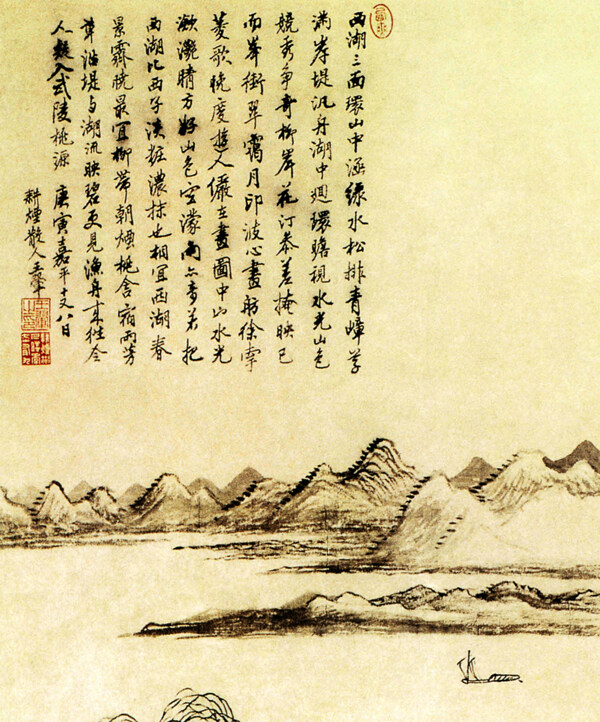 西湖三面環山中涵綠水松排青嶂草
滿岸堤汎舟湖中迴環瞻視水光山色
競秀爭奇柳岸花汀參差掩映已
而峯銜翠靄月印波心畫舫徐牽
菱歌晚度遊人儼在畫圖中山水光
瀲灧晴方好山色空濛雨亦奇若把
西湖比西子淡粧濃抹也相宜西湖春
景霽曉最宜柳帶朝煙桃含宿雨芳
草油堤與湖流映碧更見漁舟來往令
人疑入武陵桃源 庚寅嘉平十又八日
耕煙散人王翬